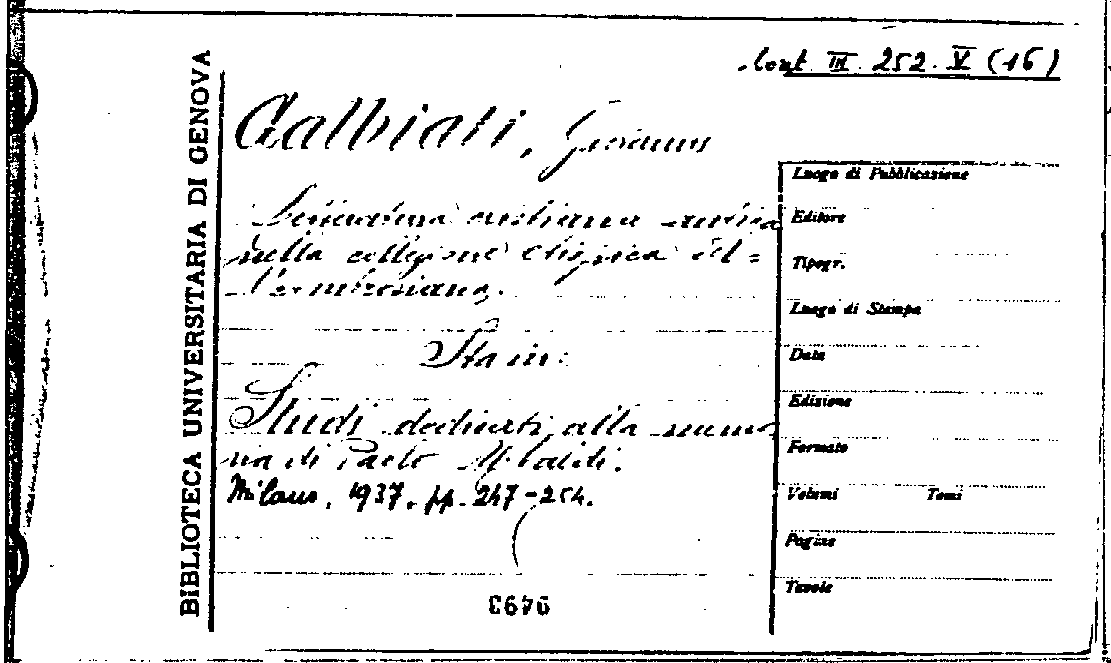 Cont. III. 252. V (16)
BIBLIOTECA UNIVERSITARIA DI GENOVA
Galbiati, Giovanni
cristiana antica
nella collezione
l'Ambrosiana.
Sta in:
Studi dedicati alla memo
ria di Paolo Ubaldi.
Milano, 1937. pp. 247-254.
Luogo di Pubblicazione
Editore
Tipogr.
Luogo di Stampa
Data
Edizione
Formato
Volumi Tomi
Pagine
Tavole